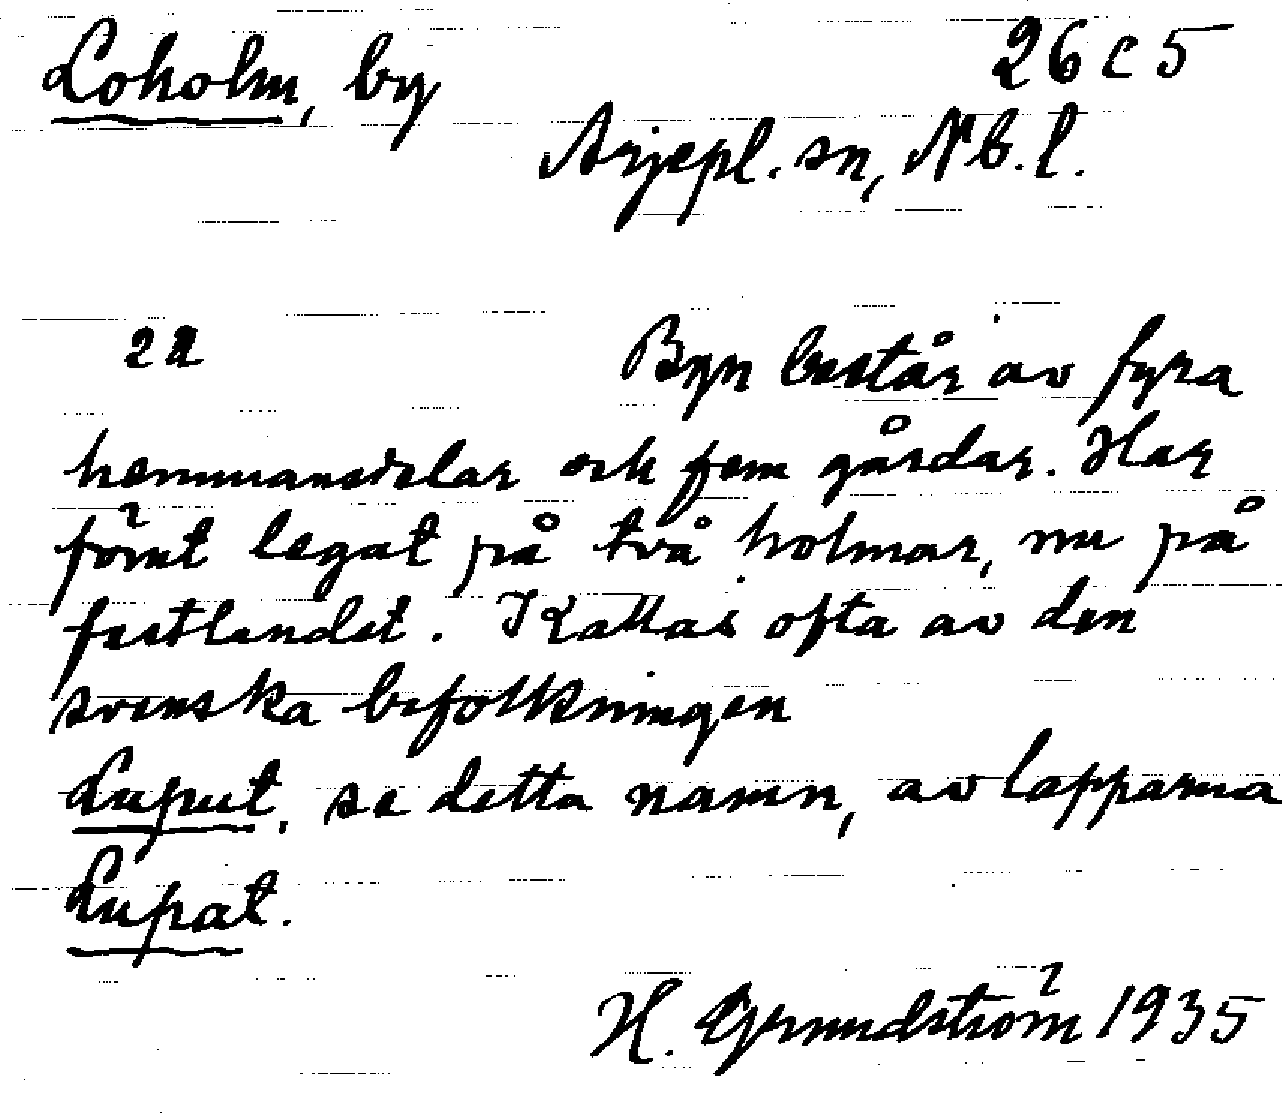 Loholm, by 26 c 5
Arjepl. sn, Nb. l.
22 Byn består av fyra
hemmansdelar och fem gårdar. Har
förut legat på två holmar, nu på
fastlandet. Kallas ofta av den
svenska befolkningen
Luput, se detta namn, av lapparna
Lupat.
H. Grundström 1935